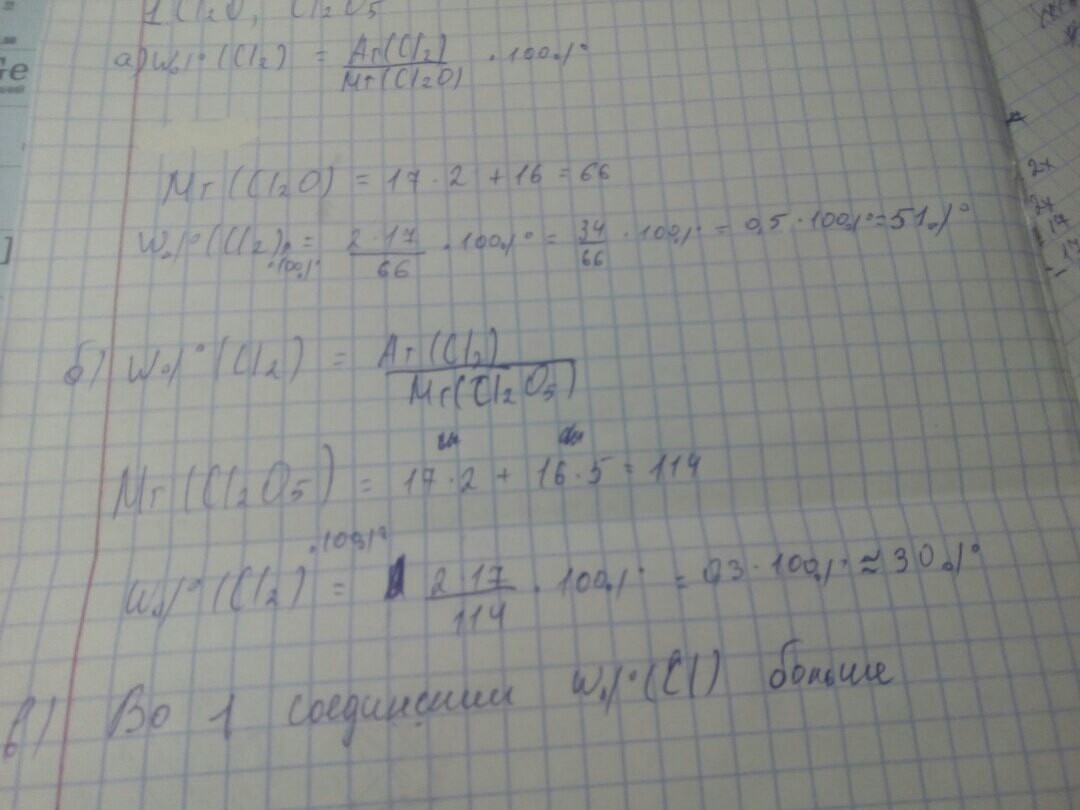 1 Cl₂O, Cl₂O₅
а) W% (Cl₂) = Ar(Cl₂) / Mr(Cl₂O) · 100%
Mr(Cl₂O) = 17 · 2 + 16 = 66
W% (Cl₂) · 100% = 2 · 17 / 66 · 100% = 34 / 66 · 100% = 0,5 · 100% = 51%
б) W% (Cl₂) = Ar(Cl₂) / Mr(Cl₂O₅)
Mr(Cl₂O₅) = 17 · 2 + 16 · 5 = 114
W% (Cl₂) · 100% = 2 · 17 / 114 · 100% = 0,3 · 100% ≈ 30%
в) Во 1 соединении W% (Cl) больше
Ge
]
2х
17